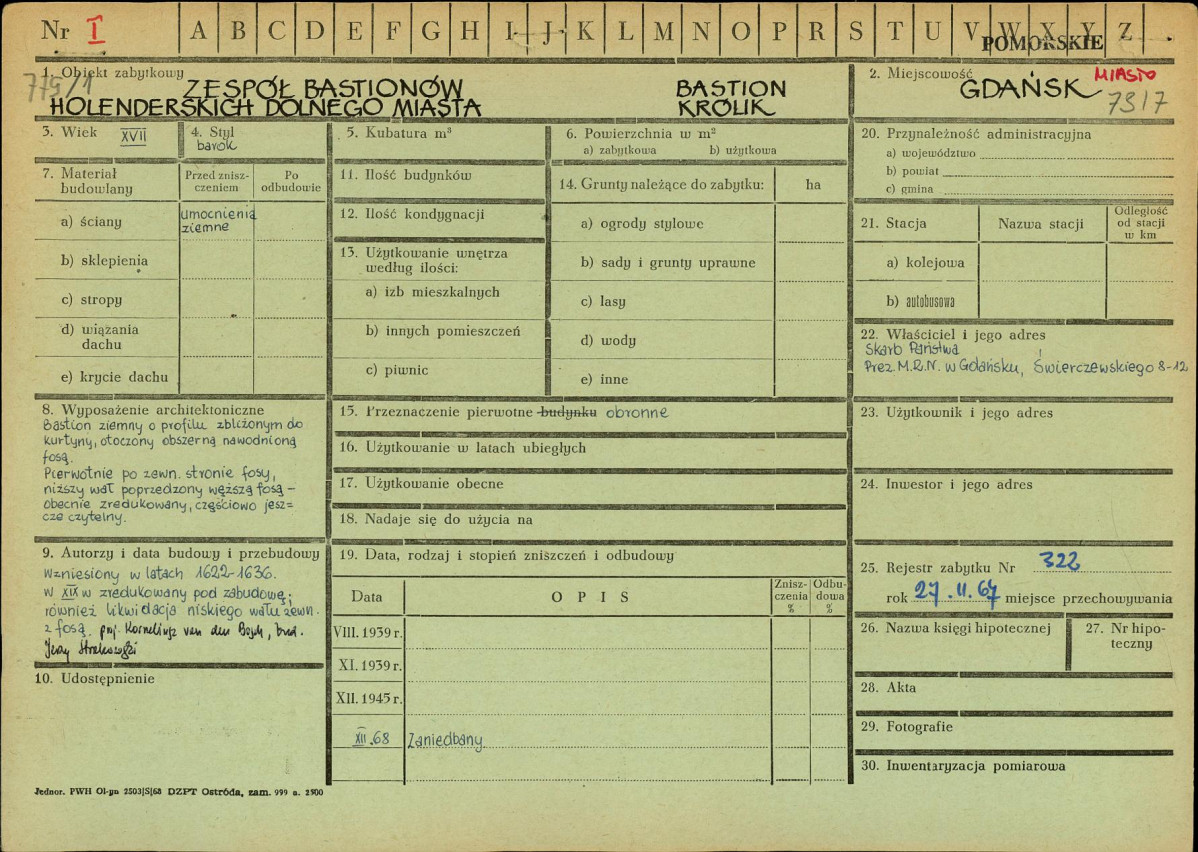 Nr I A B C D E F G H I J K L M N O P R S T U V W X Y Z
POMORSKIE
775/1
1. Obiekt zabytkowy
ZESPÓŁ BASTIONÓW
HOLENDERSKICH DOLNEGO MIASTA
BASTION
KRÓLIK
2. Miejscowość
GDAŃSK
MIASTO
7317
3. Wiek XVII
4. Styl
barok
5. Kubatura m³
6. Powierzchnia w m²
a) zabytkowa b) użytkowa
7. Materiał
budowlany
Przed znisz-
czeniem
Po
odbudowie
a) ściany
umocnienia
ziemne
b) sklepienia
c) stropy
d) wiązania
dachu
e) krycie dachu
8. Wyposażenie architektoniczne
Bastion ziemny o profilu zbliżonym do
kurtyny, otoczony obszerną nawodnioną
fosą.
Pierwotnie po zewn. stronie fosy,
niższy wał poprzedzony węższą fosą –
obecnie zredukowany, częściowo jesz=
cze czytelny.
9. Autorzy i data budowy i przebudowy
Wzniesiony w latach 1622-1636.
w XIX w zredukowany pod zabudowę;
również likwidacja niskiego wału zewn.
z fosą. proj. Korneliusz van den Bosch, bud.
Jerzy Strakowski
10. Udostępnienie
11. Ilość budynków
12. Ilość kondygnacji
13. Użytkowanie wnętrza
według ilości:
a) izb mieszkalnych
b) innych pomieszczeń
c) piwnic
14. Grunty należące do zabytku:
ha
a) ogrody stylowe
b) sady i grunty uprawne
c) lasy
d) wody
e) inne
15. Przeznaczenie pierwotne budynku obronne
16. Użytkowanie w latach ubiegłych
17. Użytkowanie obecne
18. Nadaje się do użycia na
19. Data, rodzaj i stopień zniszczeń i odbudowy
Data
O P I S
Znisz-
czenia
%
Odbu-
dowa
%
VIII. 1939 r.
XI. 1939 r.
XII. 1945 r.
XII.68 Zaniedbany.
20. Przynależność administracyjna
a) województwo
b) powiat
c) gmina
21. Stacja
Nazwa stacji
Odległość
od stacji
w km
a) kolejowa
b) autobusowa
22. Właściciel i jego adres
Skarb Państwa
Prez. M.R.N. w Gdańsku, Świerczewskiego 8-12
23. Użytkownik i jego adres
24. Inwestor i jego adres
25. Rejestr zabytku Nr 322
rok 27.II.67 miejsce przechowywania
26. Nazwa księgi hipotecznej
27. Nr hipo-
teczny
28. Akta
29. Fotografie
30. Inwentaryzacja pomiarowa
Jednor. PWH Ol-yn 2503/S/68 DZPT Ostróda, zam. 999 n. 2500